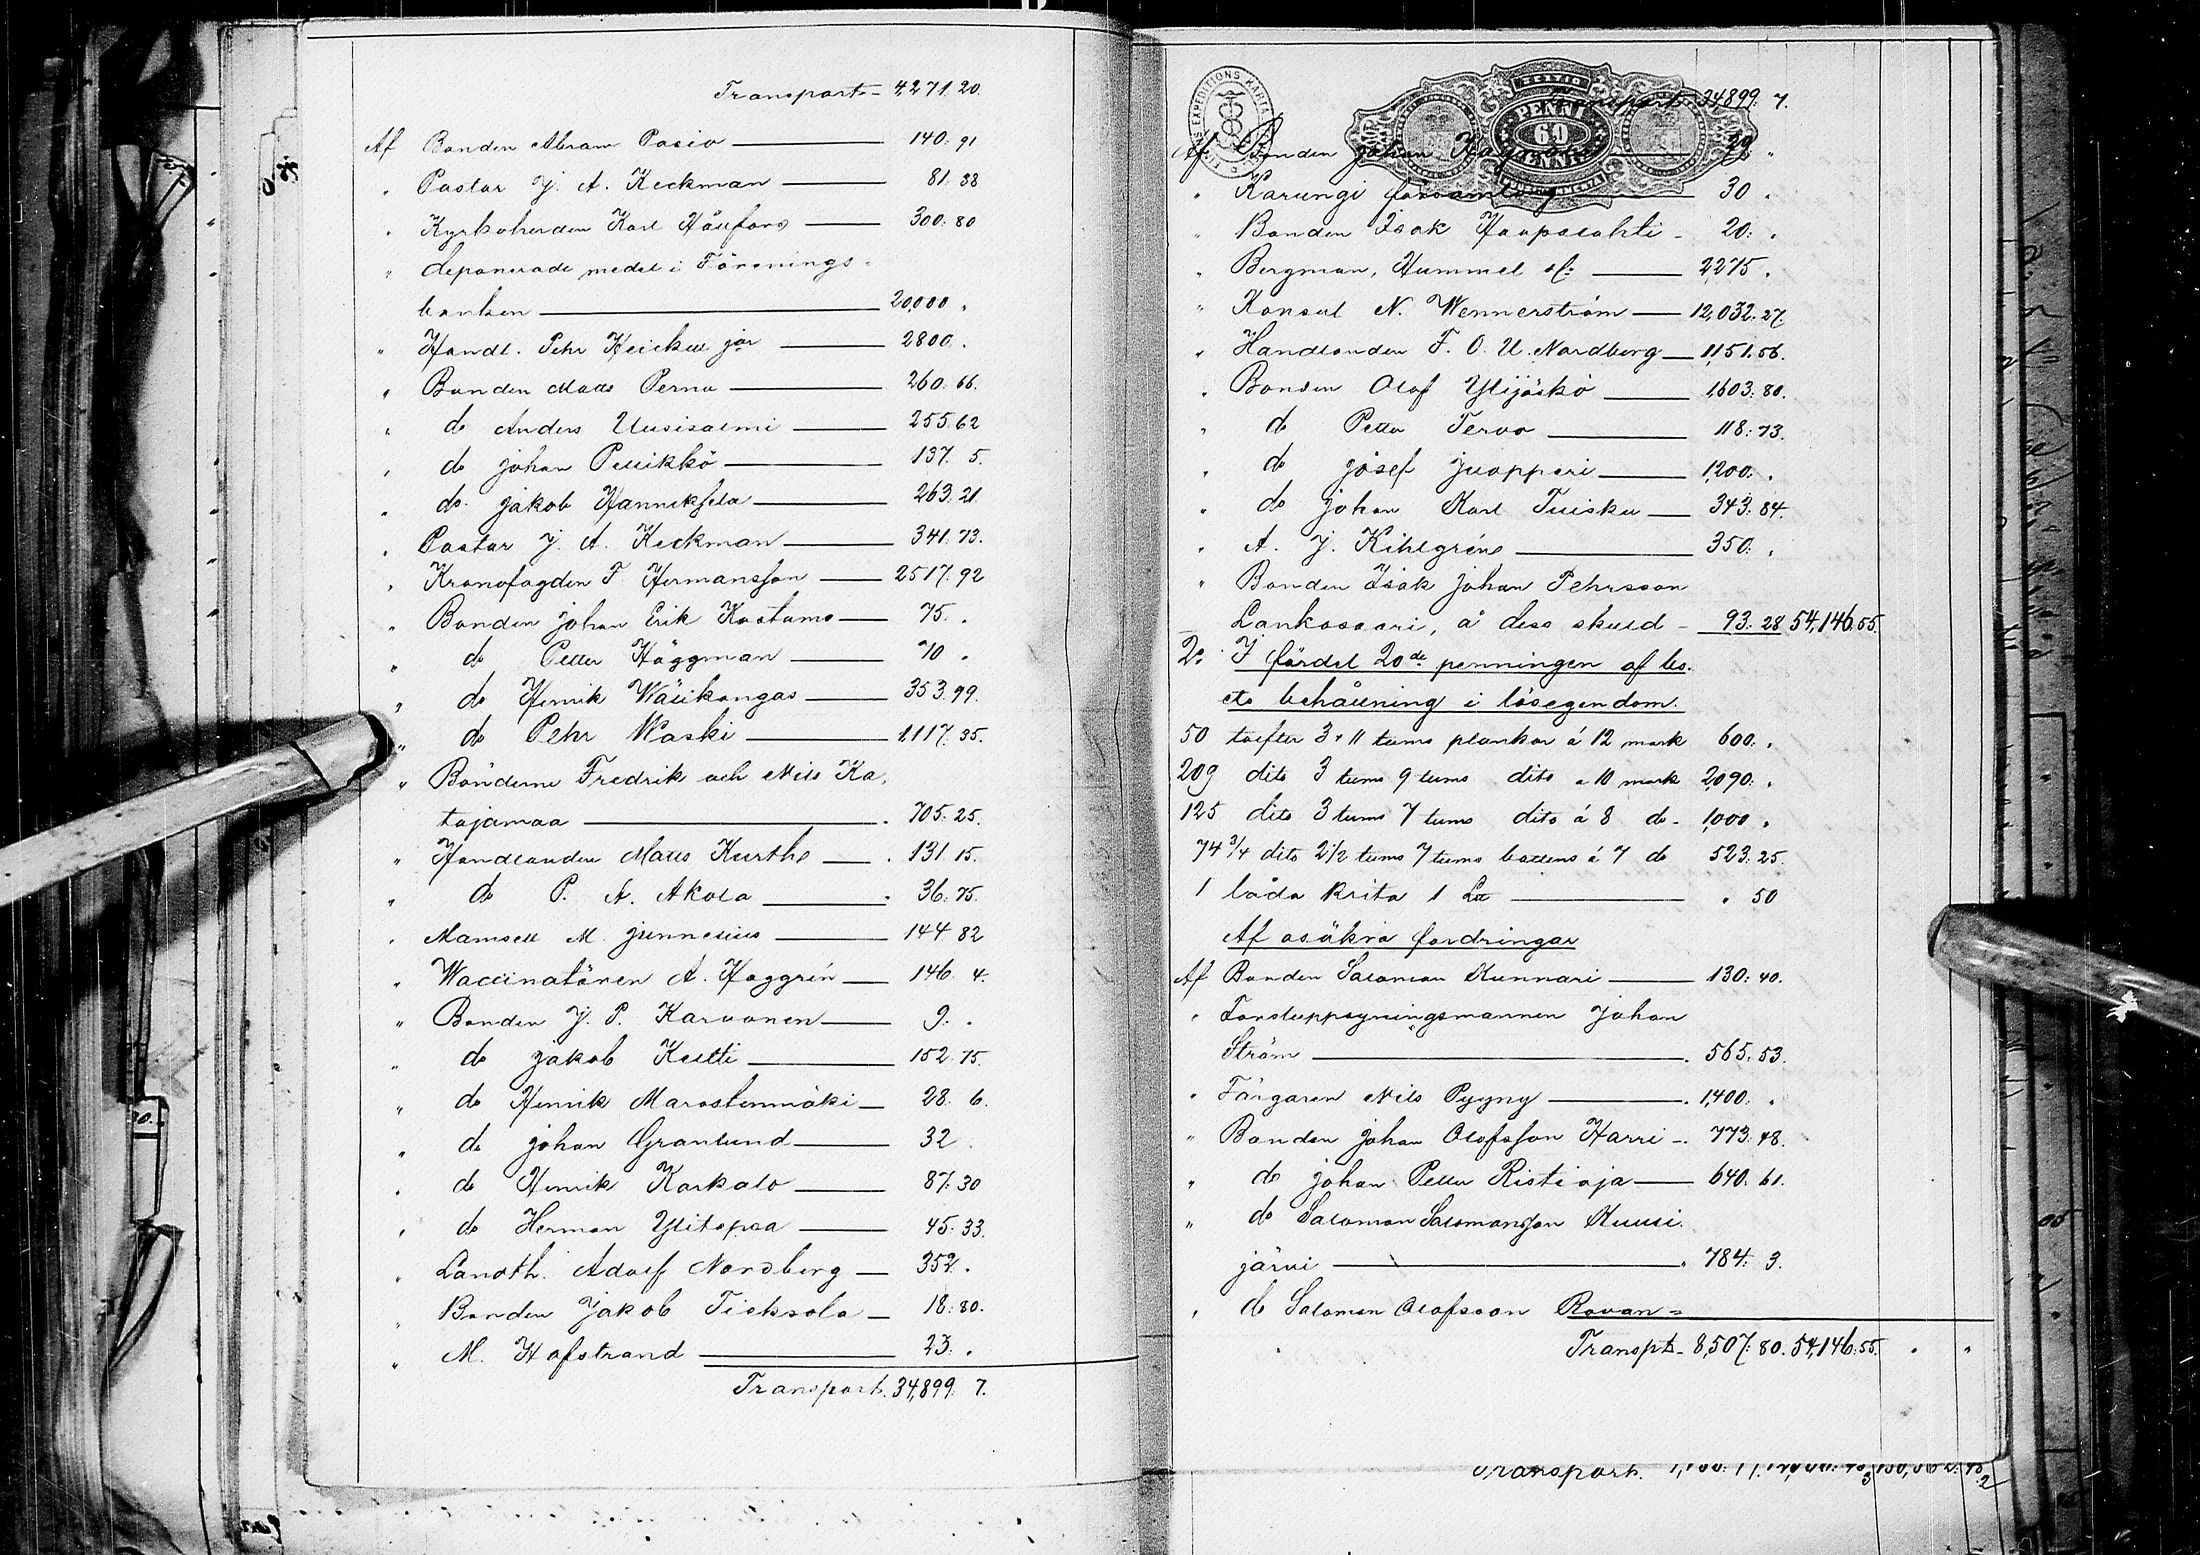 Transport 4,271. 20.
Af Bonden Abram Pasio 140. 91
" Pastor J. A. Keckman 81. 38
" Kyrkoherden Karl Höckfors 300. 80
" deponerade medel i Förenings-
banken 20,000 "
" Handl. Pehr Heickell jör 2800. "
" Bonden Matts Perna 260. 66.
" do Anders Uusisalmi 255. 62
" do Johan Peuikkö 137. 5.
" do. Jakob Hannikfela 263. 21.
" Pastor J. A. Keckman 341. 73.
" Kronofogden F Hermansson 2517. 92
" Bonden Johan Erik Kostamo 75. "
" do Petter Häggman 70 "
" do Henrik Wälikangas 353. 99.
" do Pehr Waski 1117. 35.
" Bönderne Fredrik och Nils Ka-
tajamaa 705. 25.
" Handlanden Matts Kurthe 131. 15.
" do P. A. Akola 36. 75.
" Mamsell M. Junnelius 144 82
" Waccinatören A. Haggrén 146. 4.
" Bonden J. P. Karvonen 9. "
" do Jakob Kutti 152. 75.
" do Henrik Marostenmäki 28. 6.
" do Johan Granlund 32
" do Henrik Karkalo 87. 30
" do Herman Ylitapaa 45. 33.
" Landth. Adolf Nordberg 352. "
" Bonden Jakob Tieksola 18. 80.
" M. Hofstrand 23. "
Transport. 34,899. 7.
EXPEDITIONS KARTA
PENNI
69
PENNIÄ
Transport 34,899. 7.
Af Bonden Johan 29 "
" Karungi församling 30 "
" Bonden Isak Haapalahti 20: "
" Bergman, Hummel & C: 2,275 "
" Konsul N. Wennerström 12,032. 27.
" Handlanden F. O. U. Nordberg 1,151. 56.
" Bonden Olof Ylijääskö 1,603: 80.
" do Petter Tervo 118: 73.
" do Josef Juopperi 1,200: "
" do Johan Karl Tuisku 343: 84.
" A. J. Kihlgréns 350: "
" Bonden Isak Johan Pehrsson
Lankosaari, å dess skuld 93: 28 54,146. 55.
2o I fördel 20de penningen af bo-
ets behållning i lösegendom.
50 tolfter 3 × 11 tums plankor á 12 mark 600: "
209 dito 3 tums 9 tums dito a 10 mark 2,090: "
125 dito 3 tums 7 tums dito á 8 do 1,000 "
74 3/4 dito 2 1/2 tums 7 tums battens á 7 do 523: 25.
1 låda krita 1 L " 50
Af osäkra fordringar
Af Bonden Salomon Kunnari 130: 40.
" Forstuppsyningsmannen Johan
Ström 565. 53.
" Färgaren Nils Pyyny 1,400: "
" Bonden Johan Olofsson Harri 773. 48.
" do Johan Petter Ristioja 640. 61.
" do Salomon Salomansson Kuusi-
järvi 784: 3.
" do Salomon Olofsson Rovan-
Transpt. 8,507: 80. 54,146: 55. " "
Transport.